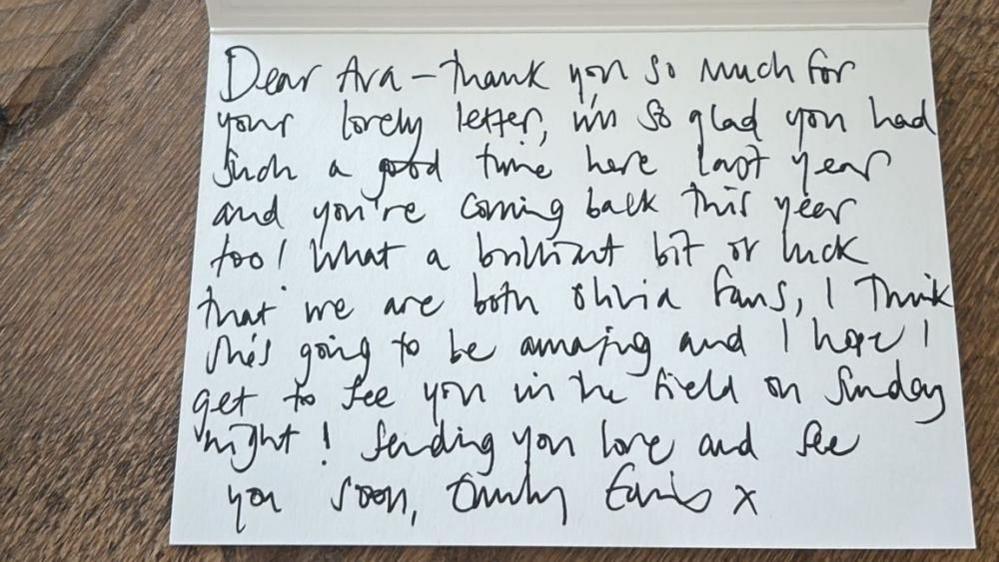 Dear Ava – thank you so much for
your lovely letter, i'm so glad you had
such a good time here last year
and you're coming back this year
too! What a brilliant bit of luck
that we are both Olivia fans, I think
she's going to be amazing and I hope I
get to see you in the field on Sunday
night! Sending you love and see
you soon, Emily Eavis x